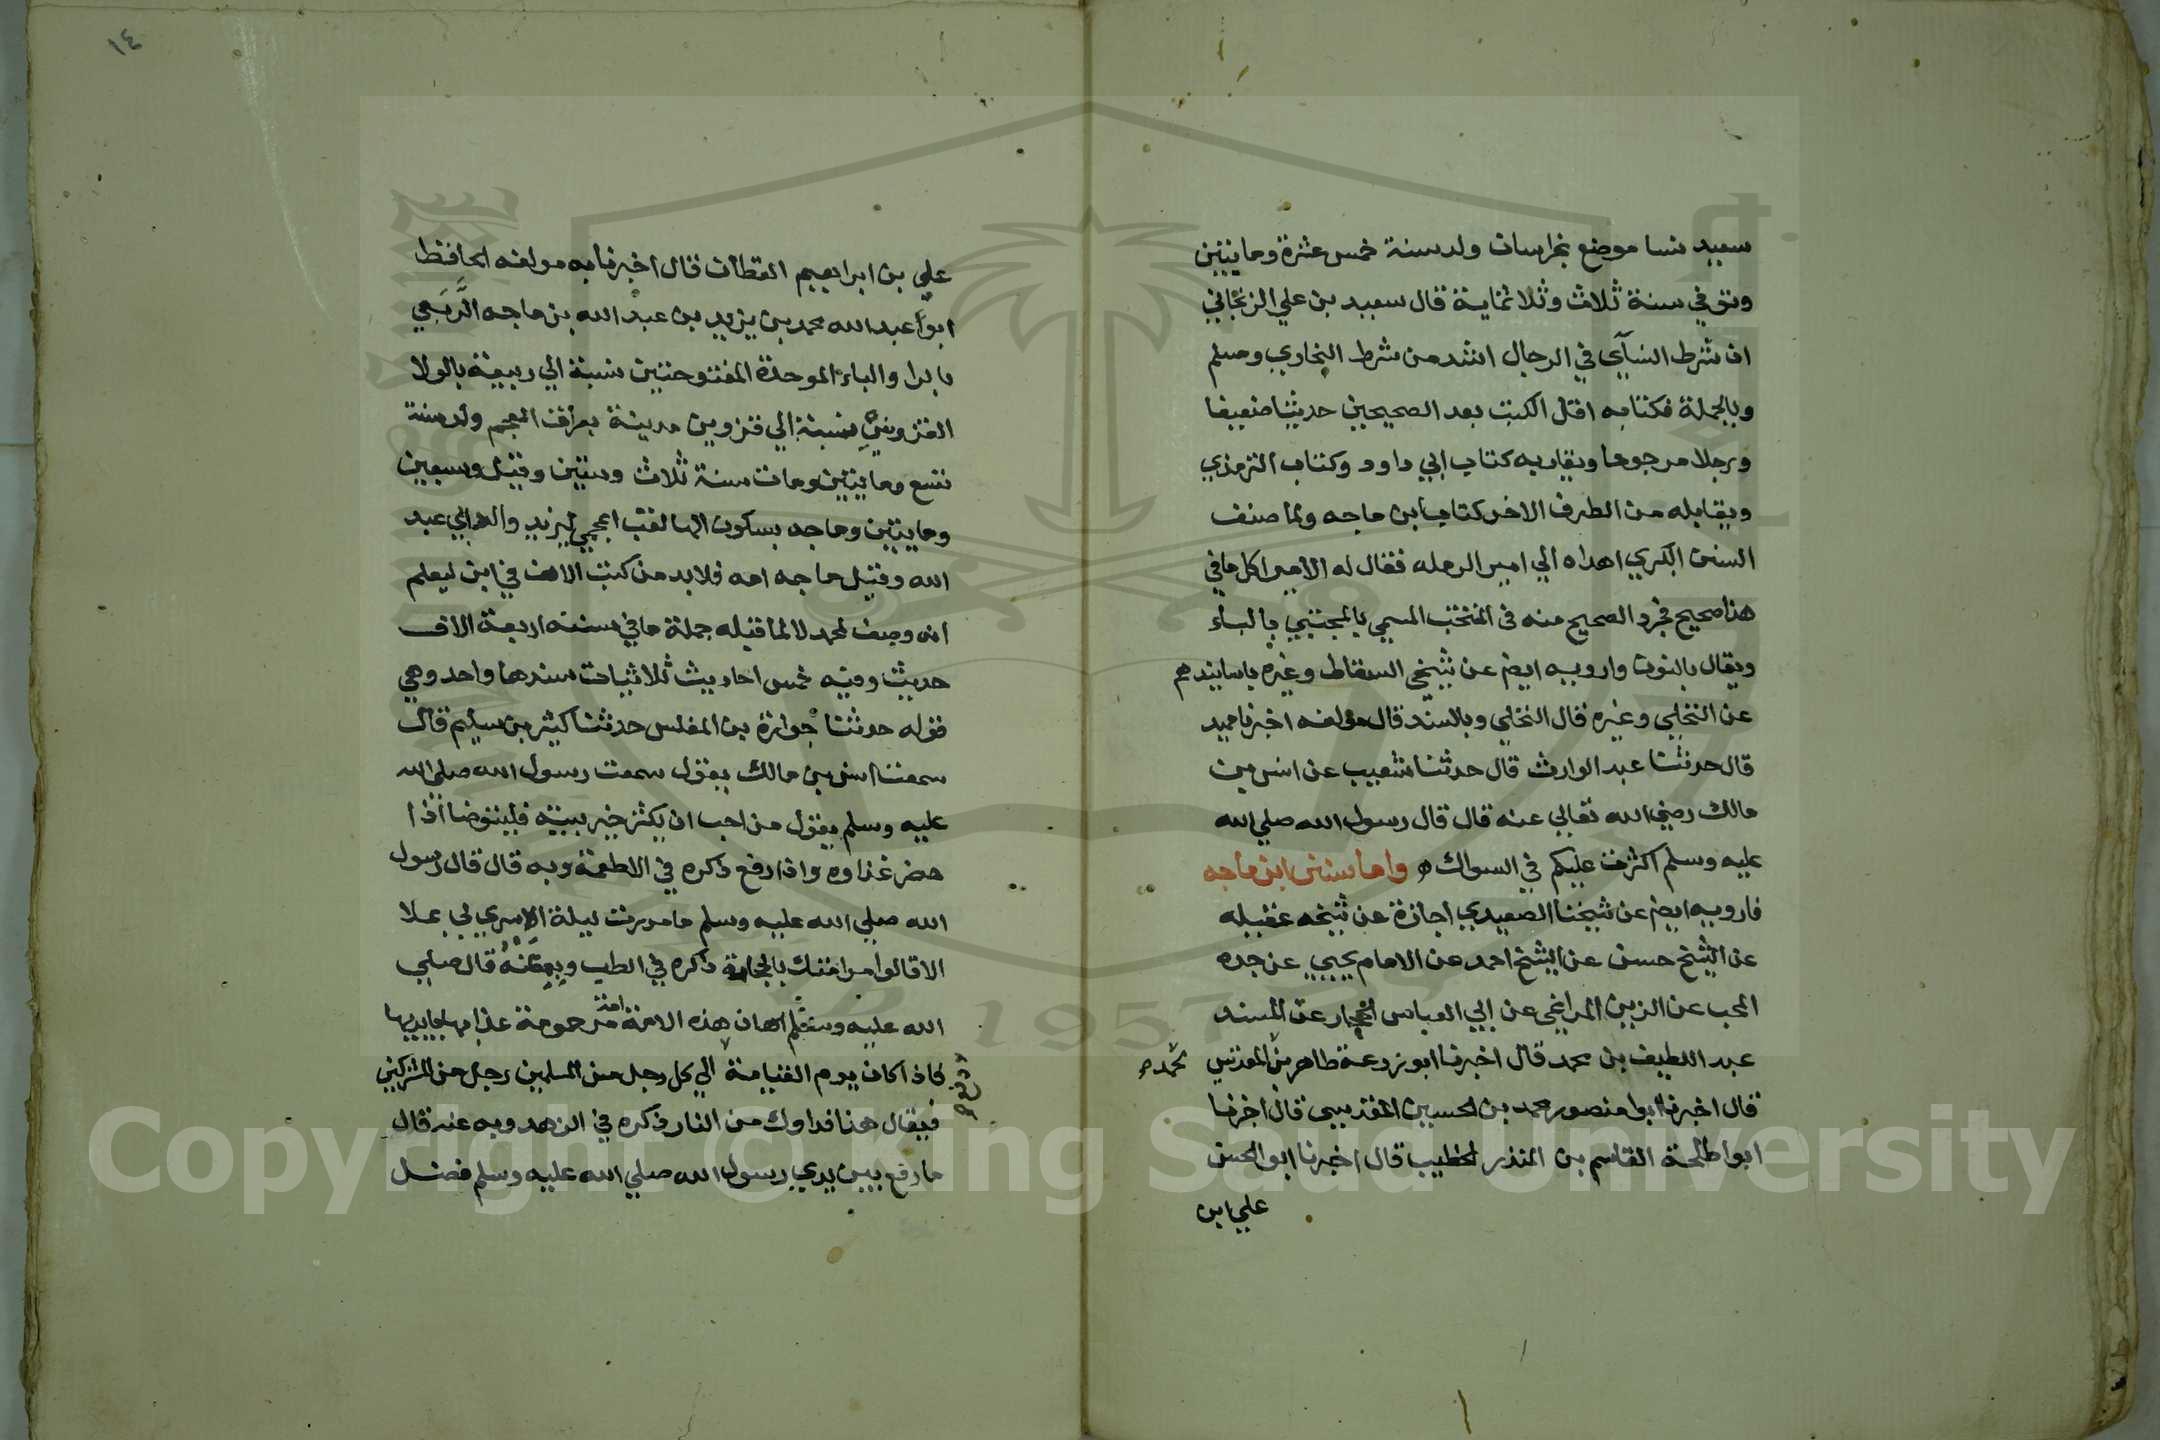 سعيد نسا موضع بخراسان ولد سنة خمس عشرة وماينتين
وتوفي سنة ثلاث وثلاثماية قال سعيد بن علي الزنجاني
ان شرط النسآي في الرجال اشد من شرط البخاري ومسلم
وبالجملة فكتابه اقل الكتب بعد الصحيحين حديثا ضعيفا
ورجلا مرجوحا ويقاربه كتاب ابي داود وكتاب الترمذي
ويقابله من الطرف الاخر كتاب ابن ماجه ولما صنف
السنن الكبري اهداه الي امير الرمله فقال له الامير اكل ما في
هذا صحيح فجرد الصحيح منه في المنتخب المسمي بالمجتبي بالباء
ويقال بالنون وارويه ايضا عن شيخي السقاط وغيره باسانيدهم
عن النخلي وغيره قال النخلي وبالسند قال مولفه اخبرنا حميد
قال حدثنا عبد الوارث قال حدثنا شعيب عن انس بن
مالك رضي الله تعالي عنه قال قال رسول الله صلي الله
عليه وسلم اكثرت عليكم في السواك ه واما سنن ابن ماجه
فارويه ايضا عن شيخنا الصعيدي اجازة عن شيخه عقيله
عن الشيخ حسن عن الشيخ احمد عن الامام يحيي عن جده
المحب عن الزين المراغي عن ابي العباس الحجار عن المسند
عبد اللطيف بن محمد قال اخبرنا ابو زرعة طاهر بن المقدسي
محمد ه
قال اخبرنا ابوا منصور محمد بن الحسين المقدسي قال اخبرنا
ابوا طلحة القاسم بن المنذر الخطيب قال اخبرنا ابو الحسن
علي ابن
١٤
علي بن ابراهيم القطان قال اخبرنا به مولفه الحافظ
ابوا عبد الله محمد بن يزيد بن عبد الله بن ماجه الربعي
بالرا والباء الموحدة المفتوحتين نسبة الي ربيعة بالولا
القزويني نسبة الي قزوين مدينة بعراق العجم ولد سنة
تسع وماينتين ومات سنة ثلاث وستين وقيل وسبعين
وماينتين وماجه بسكون الها لقب اعجمي ليزيد والد ابي عبد
الله وقيل ماجه امه فلابد من كتب الالف في ابن ليعلم
انه وصف لمحمد لا لما قبله جملة ما في سننه اربعة الاف
حديث وفيه خمس احاديث ثلاثيات سندها واحد وهي
قوله حدثنا جبارة بن المغلس حدثنا كثير بن سليم قال
سمعت انس بن مالك يقول سمعت رسول الله صلي الله
عليه وسلم يقول من احب ان يكثر خير بيته فليتوضا اذا
حضر غذاوه واذا رفع ذكره في الاطعمة وبه قال قال رسول
الله صلي الله عليه وسلم ما مررت ليلة الاسري بي بملا
الا قالوا مر امتك بالحجامة ذكره في الطب وبه عنه قال صلي
الله عليه وسلم ان هذه الامة امة مرحومة عذابها بايديها
فاذا كان يوم القيامة الي كل رجل من المسلمين رجل من المشركين
فيقال هذا فداوك من النار ذكره في الزهد وبه عنه قال
ما رفع بين يدي رسول الله صلي الله عليه وسلم فضل
Copyright © King Saud University
1957